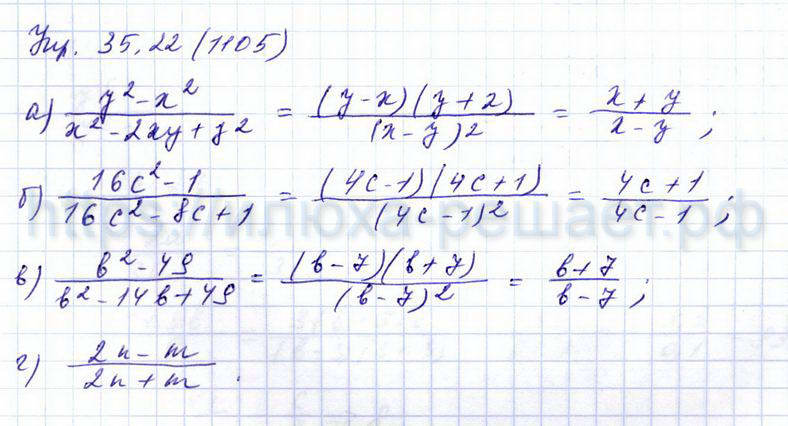 Упр. 35.22 (1105)
а) (y² - x²)/(x² - 2xy + y²) = ((y - x)(y + 2))/((x - y)2) = (x + y)/(x - y);
б) (16c² - 1)/(16c² - 8c + 1) = ((4c - 1)(4c + 1))/((4c - 1)²) = (4c + 1)/(4c - 1);
https://илюха-решает.рф
в) (b² - 49)/(b² - 14b + 49) = ((b - 7)(b + 7))/((b - 7)²) = (b + 7)/(b - 7);
г) (2n - m)/(2n + m).